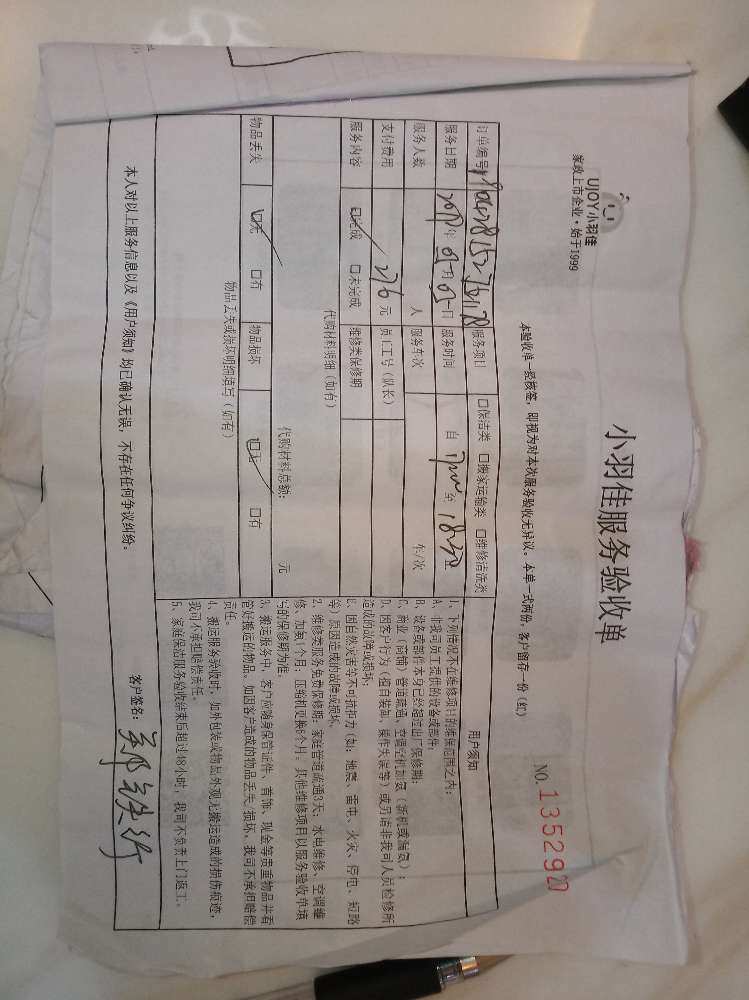 UJOY小羽佳
家政上市企业·始于1999
小羽佳服务验收单
本验收单一经核签，即视为对本次服务验收无异议。本单一式两份，客户留存一份（红）
NO.1352927
订单编号 服务项目 口保洁类 口搬家运输类 口维修清洗类
服务日期 年 月 03 日 服务时间 自 至 18:30
服务人数 人 服务车次 车/次
支付费用 276 元 员工工号（队长）
服务内容 口完成 口未完成 维修类保修期
代购材料明细（如有）
代购材料总额： 元
物品丢失 口无 口有 物品损坏 口无 口有
物品丢失或损坏明细填写（如有）
用户须知
1、下列情况不在维修项目的维保范围之内：
A、非我司员工提供的设备或部件；
B、设备或部件本身已经超过出厂保修期；
C、商业（商铺）管道疏通、空调制机加氨（新机或漏氨）；
D、因客户行为（擅自装卸、操作失误等）或另请非我司人员检修所
造成的故障或损坏；
E、因自然灾害等不可抗拒力（如：地震、雷电、火灾、停电、短路
等）原因造成的故障或损坏。
2、维修类服务免费保修期：家庭管道疏通3天；水电维修、空调维
修、加氨1个月，压缩机更换6个月。其他维修项目以服务验收单填
写的保修期为准。
3、搬运服务中，客户应随身保管证件、首饰、现金等贵重物品并看
管好搬运的物品。如因客户造成的物品丢失、损坏，我司不承担赔偿
责任。
4、搬运服务验收时，如外包装或物品外观无搬运造成的损伤痕迹，
我司不承担赔偿责任。
5、家庭保洁服务验收结束后超过48小时，我司不负责上门返工。
本人对以上服务信息以及《用户须知》均已确认无误，不存在任何争议纠纷。
客户签名：郑铁行